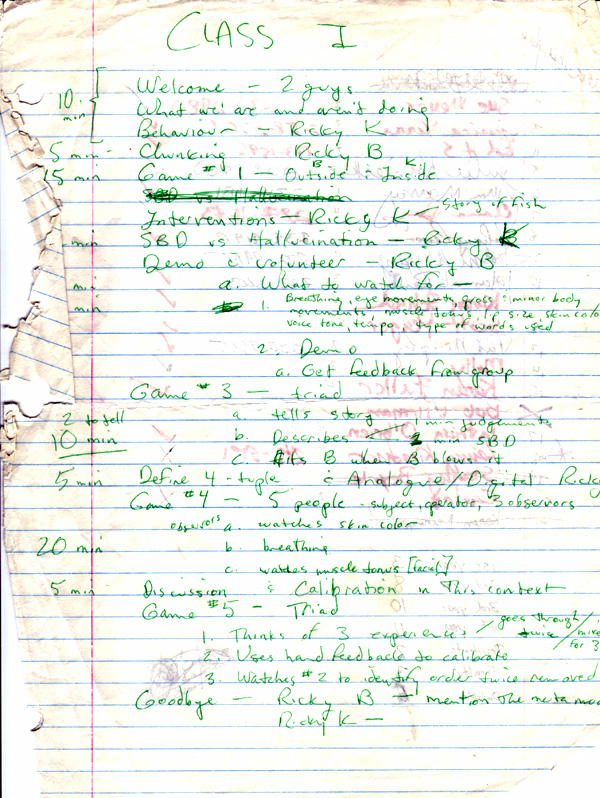 CLASS I
Welcome - 2 guys
10 min
What we are and aren't doing
Behaviour - Ricky K
5 min Chunking Ricky B
15 min Game #1 - Outside B : Inside K
SBD vs Hallucination
Interventions - Ricky K Story of fish
min SBD vs Hallucination - Ricky
Demo c volunteer - Ricky B
min a. What to watch for -
min 1. Breathing, eye movements, gross : minor body
movements, muscle tonus, lip size, skin color
voice tone, tempo, type of words used
2. Demo
a. Get feedback from group
Game #3 - triad
2 to tell a. tells story
10 min b. Describes 1 min judgements
2 min SBD
c. Hits B when B blows it
5 min Define 4-tuple : Analogue/Digital Ricky
Game #4 - 5 people - subject, operator, 3 observors
observors a. watches skin color
20 min b. breathing
c. watches muscle tonus [facial]
5 min Discussion : Calibration in this context
Game #5 - Triad
1. Thinks of 3 experiences / goes through
twice / mixe
for 3
2. Uses hand feedback to calibrate
3. Watches #2 to identify order twice removed
Goodbye - Ricky B - mention the meta mo
Ricky K -